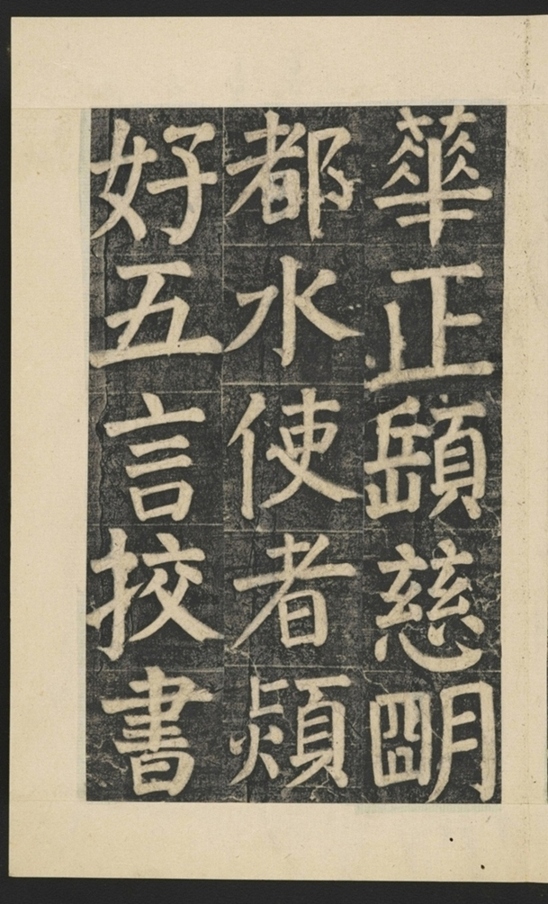 華正慈朙
都水使者
好五言挍書